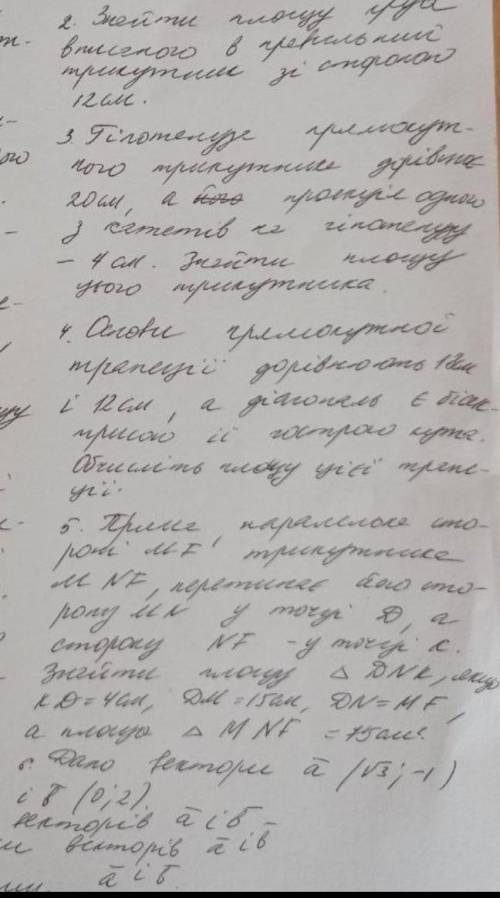 2. Знайти площу круга
вписаного в правильний
трикутник зі стороною
12 см.
3. Гіпотенуза прямокут-
ного трикутника дорівнює
20см, а його проекція одного
з катетів на гіпотенузу
– 4 см. Знайти площу
цього трикутника.
4. Основи прямокутної
трапеції дорівнюють
і 12см, а діагональ є бісек-
трисою її гострого кута.
Обчисліть площу цієї трапе-
ції.
5. Пряма, паралельна сто-
роні MF трикутника
MNF, перетинає його сто-
рону MN у точці D, а
сторону NF – у точці K.
Знайти площу △ DNK, якщо
KD = 4см, DM = 15см, DN = MF,
а площа △ MNF = 75см².
6. Дано вектори a̅ (√3; -1)
і b̅ (0; 2).
векторів a̅ і b̅ –
векторів a̅ і b̅
a̅ і b̅.